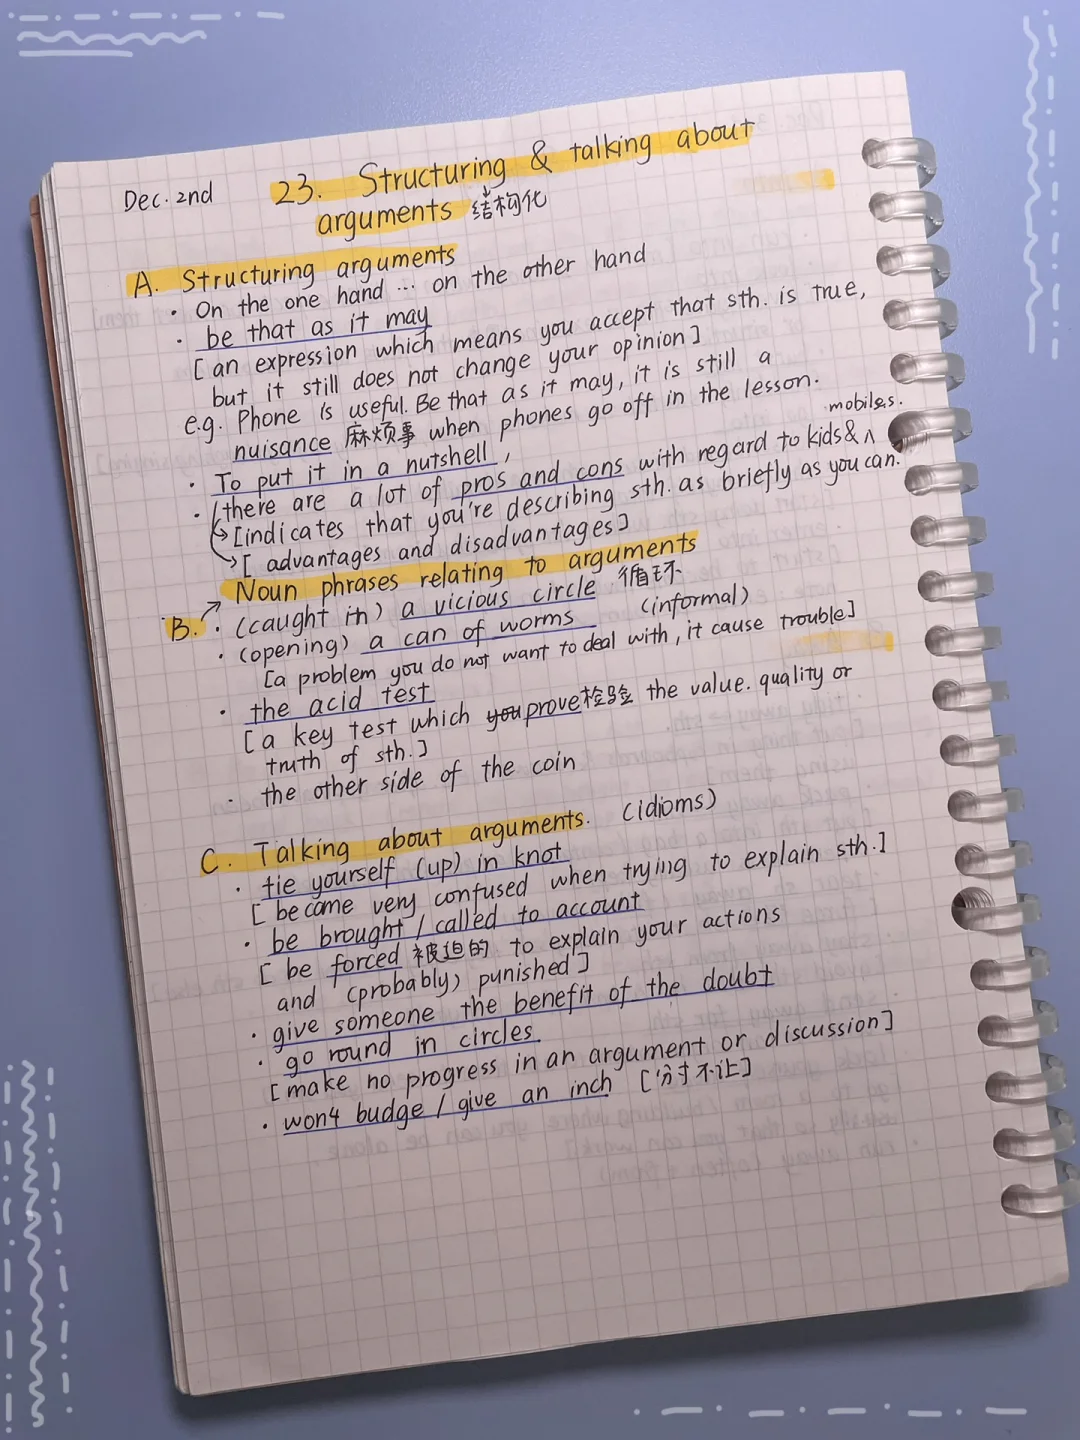 Dec. 2nd
23. Structuring & talking about
arguments 结构化
A. Structuring arguments
· On the one hand ... on the other hand
· be that as it may
[an expression which means you accept that sth. is true,
but it still does not change your opinion]
e.g. Phone is useful. Be that as it may, it is still a
nuisance 麻烦事 when phones go off in the lesson.
mobiles.
· To put it in a nutshell,
· there are a lot of pros and cons with regard to kids& ^
[indicates that you're describing sth. as briefly as you can.
[advantages and disadvantages]
Noun phrases relating to arguments
B. · (caught in) a vicious circle 循环
· (opening) a can of worms (informal)
[a problem you do not want to deal with, it cause trouble]
· the acid test
[a key test which you prove检验 the value. quality or
truth of sth.]
· the other side of the coin
C. Talking about arguments. (idioms)
· tie yourself (up) in knot
[became very confused when trying to explain sth.]
· be brought / called to account
[be forced 被迫的 to explain your actions
and (probably) punished]
· give someone the benefit of the doubt
· go round in circles
[make no progress in an argument or discussion]
· won4 budge / give an inch [寸不让]